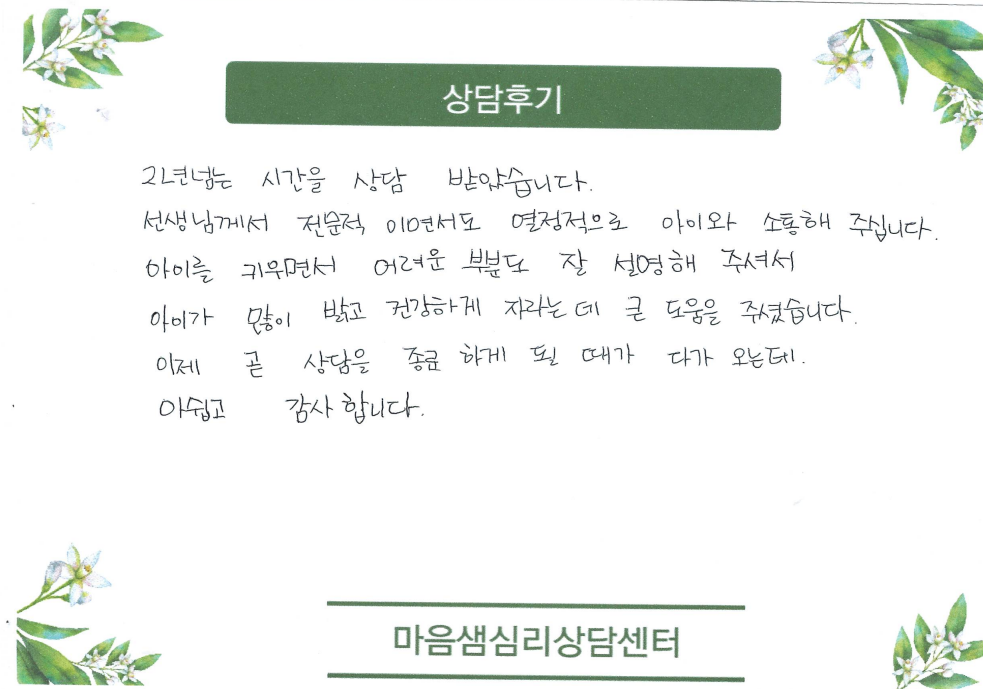 상담후기
2년넘는 시간을 상담 받았습니다.
선생님께서 전문적 이면서도 열정적으로 아이와 소통해 주십니다.
아이를 키우면서 어려운 부분도 잘 설명해 주셔서
아이가 많이 밝고 건강하게 자라는데 큰 도움을 주셨습니다.
이제 곧 상담을 종료 하게 될 때가 다가 오는데.
아쉽고 감사합니다.
마음샘심리상담센터